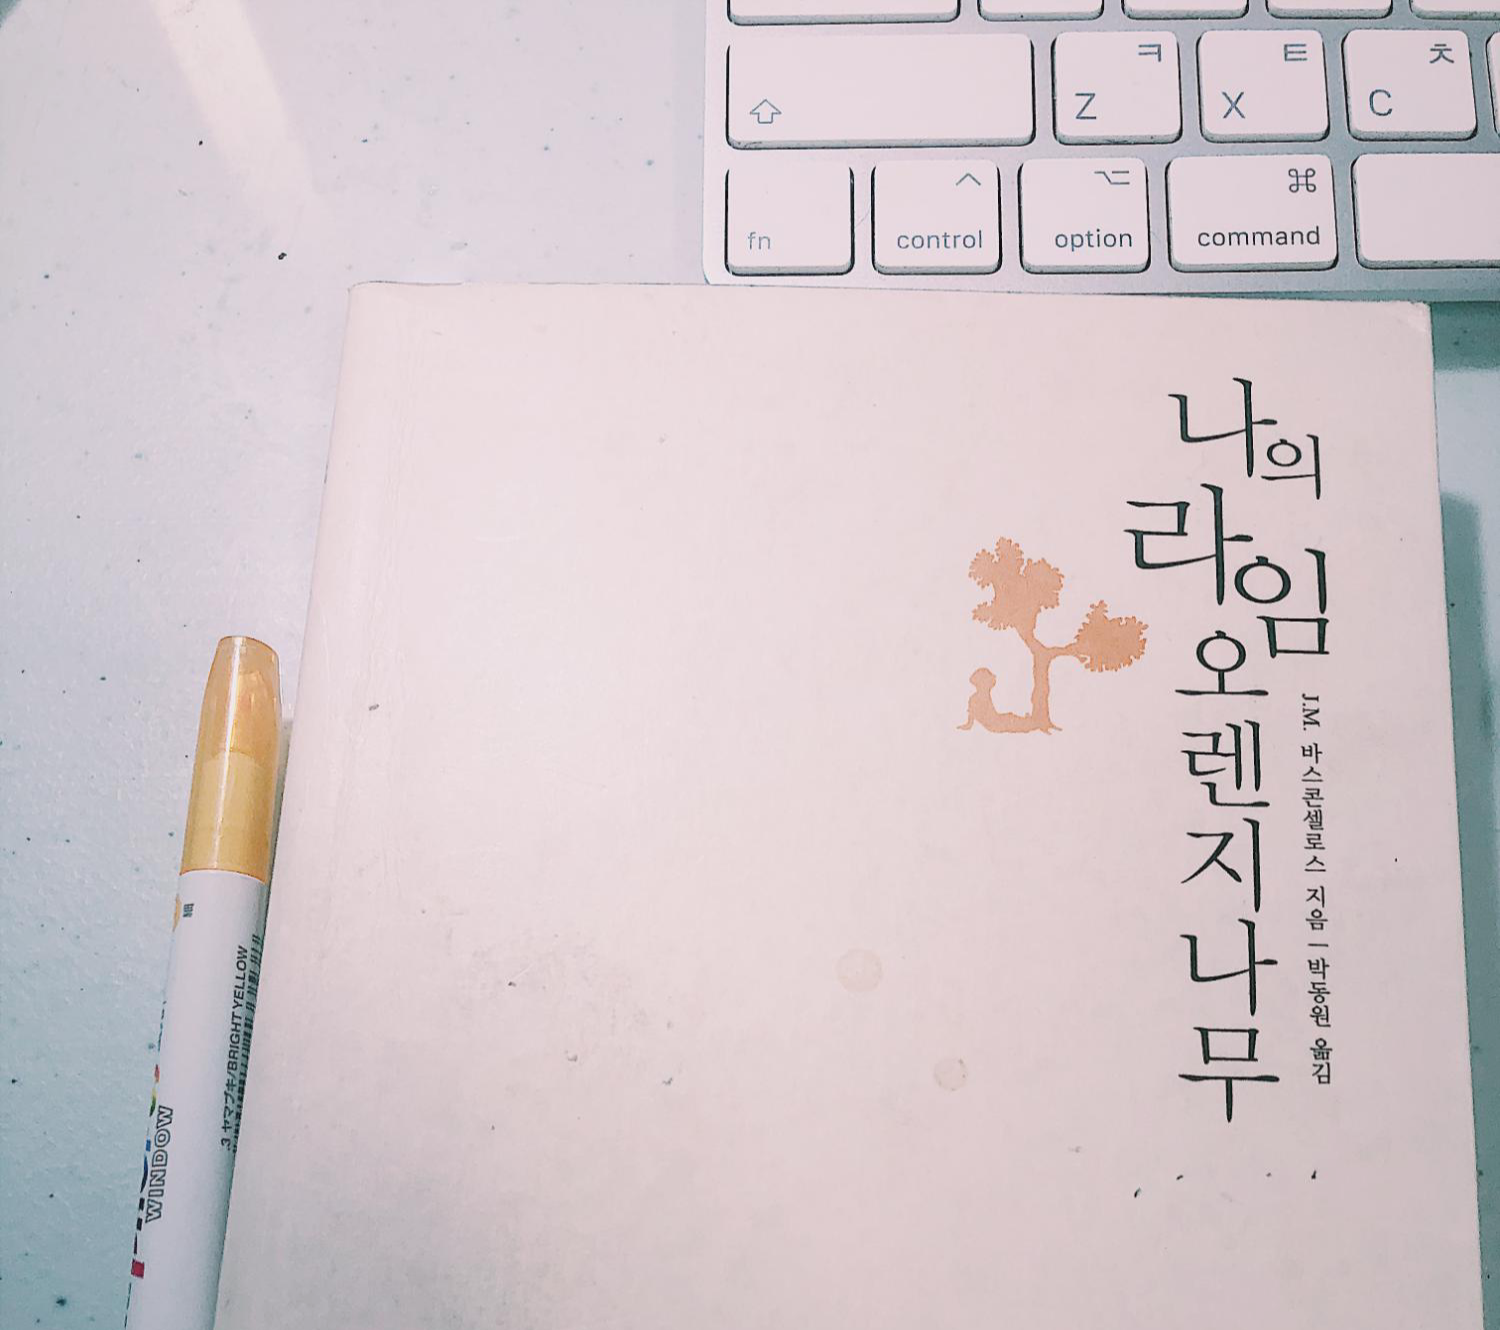 ㅋ
Z
ㅌ
X
ㅊ
C
fn
control
option
command
나의
라임
오렌지나무
J.M. 바스콘셀로스 지음 | 박동원 옮김
.3 ヤマブキ/BRIGHT YELLOW
WINDOW